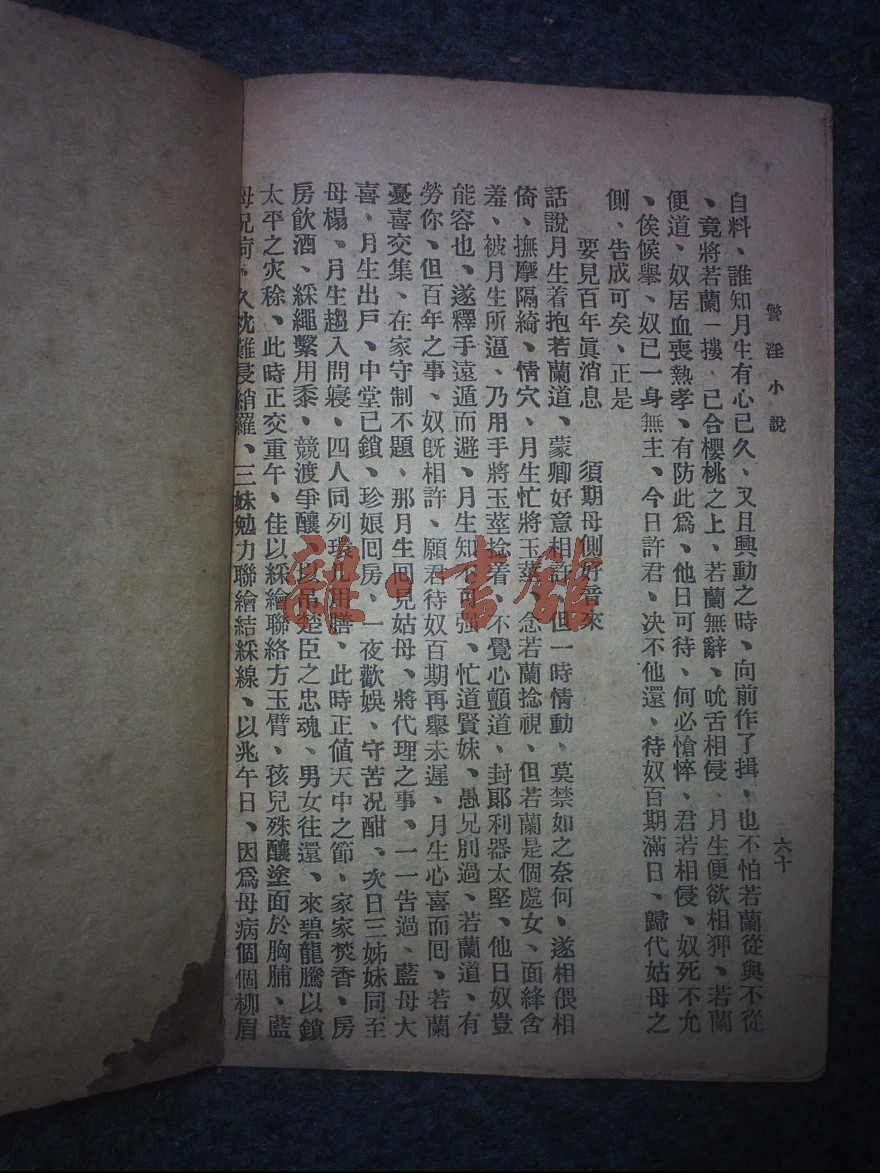 警淫小說
六十
自料、誰知月生有心已久、又且興動之時、向前作了揖、也不怕若蘭從與不從
、竟將若蘭一摟、已合櫻桃之上、若蘭無辭、吮舌相侵、月生便欲相狎、若蘭
便道、奴居血喪熱孝、有防此爲、他日可待、何必愴悴、君若相侵、奴死不允
、俟候舉、奴已一身無主、今日許君、决不他還、待奴百期滿日、歸代姑母之
側、告成可矣、正是
要見百年眞消息 須期母側好音來
話說月生着抱若蘭道、蒙卿好意相許、但一時情動、莫禁如之奈何、遂相偎相
倚、撫摩隔綺、情穴、月生忙將玉莖、念若蘭捻視、但若蘭是個處女、面絳含
羞、被月生所逼、乃用手將玉莖捻着、不覺心顫道、封郞利器太堅、他日奴豈
能容也、遂釋手遠遁而避、月生知不可强、忙道賢妹、愚兄別過、若蘭道、有
勞你、但百年之事、奴旣相許、願君待奴百期再舉未遲、月生心喜而囘、若蘭
憂喜交集、在家守制不題、那月生囘見姑母、將代理之事、一一告過、藍母大
喜、月生出戶、中堂已鎖、珍娘囘房、一夜歡娛、守苦况酣、次日三姊妹同至
母榻、月生趨入問寢、四人同列 用膳、此時正値天中之節、家家焚香、房
房飲酒、綵繩繫用黍、競渡爭釀、以吊楚臣之忠魂、男女往還、來碧龍騰以鎖
太平之灾祲、此時正交重午、佳以綵繪聯絡方玉臂、孩兒殊釀塗面於胸脯、藍
母 久枕難侵綃羅、三妹勉力聯繪結綵線、以兆午日、因爲母病個個柳眉
雜·書館